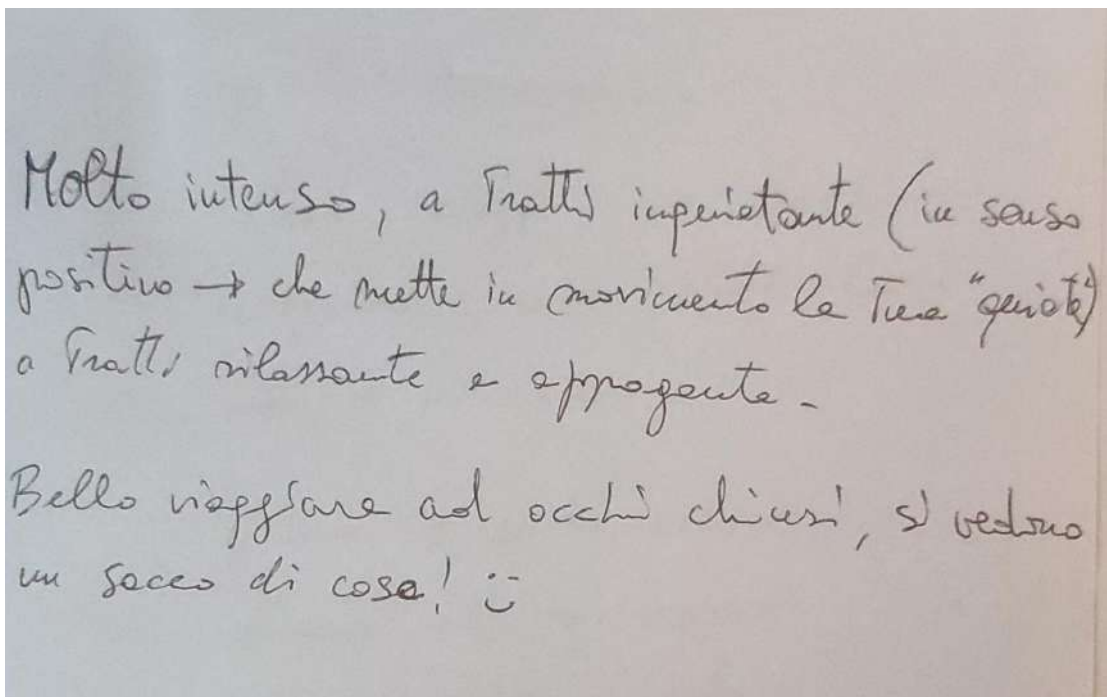 Molto intenso, a Tratti inquietante (in senso
positivo → che mette in movimento la Tua "quiete")
a Tratti rilassante e appagante -
Bello viaggiare ad occhi chiusi, si vedono
un sacco di cose! :-)